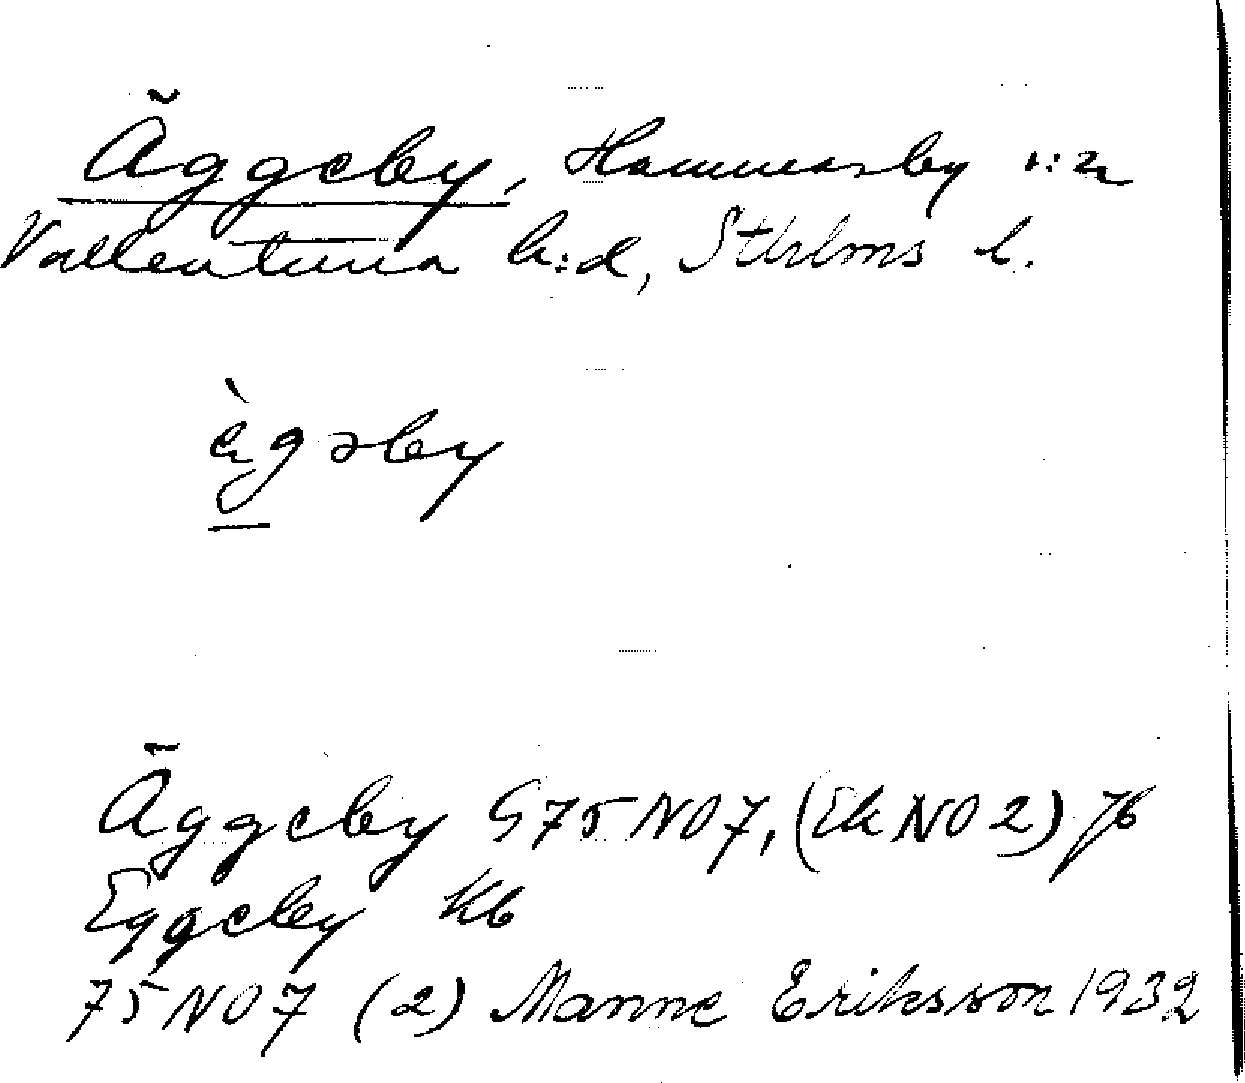 Äggeby, Hammarby s:n
Vallentuna h:d, Sthlms l.
ὲgəby
Äggeby G75NO7, (Ek NO2) Jb
Eggeby Kb
75NO7 (2) Manne Eriksson 1932